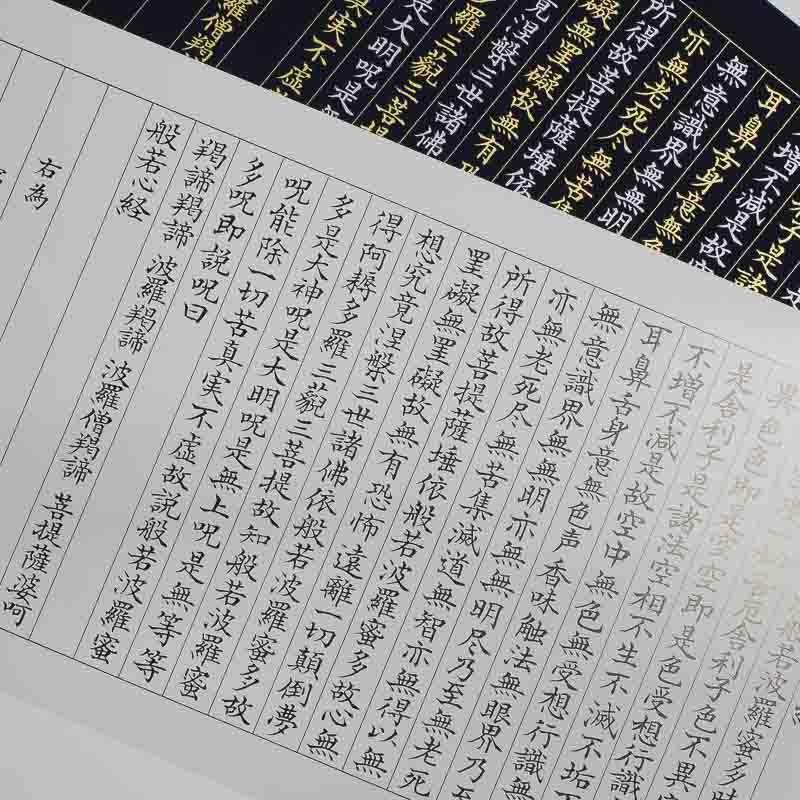 般若波羅蜜多時
厄舎利子色不異空
異色色即是空空即是色受想行識
是舎利子是諸法空相不生不滅不垢不
不増不減是故空中無色無受想行識無
耳鼻舌身意無色声香味触法無眼界乃至
無意識界無無明亦無無明尽乃至無老死
亦無老死尽無苦集滅道無智亦無得以無
所得故菩提薩埵依般若波羅蜜多故心無
罣礙無罣礙故無有恐怖遠離一切顛倒夢
想究竟涅槃三世諸佛依般若波羅蜜多故
得阿耨多羅三藐三菩提故知般若波羅蜜
多是大神呪是大明呪是無上呪是無等等
呪能除一切苦真実不虚故説般若波羅蜜
多呪即説呪曰
羯諦羯諦 波羅羯諦 波羅僧羯諦 菩提薩婆呵
般若心経
右為
子是諸
増不減是故空
耳鼻舌身意無色
無意識界無無明
亦無老死尽無苦集
所得故菩提薩埵依
礙無罣礙故無有恐
竟涅槃三世諸佛
多羅三藐三菩提
是大明呪是無
真実不虚故
羅僧羯諦